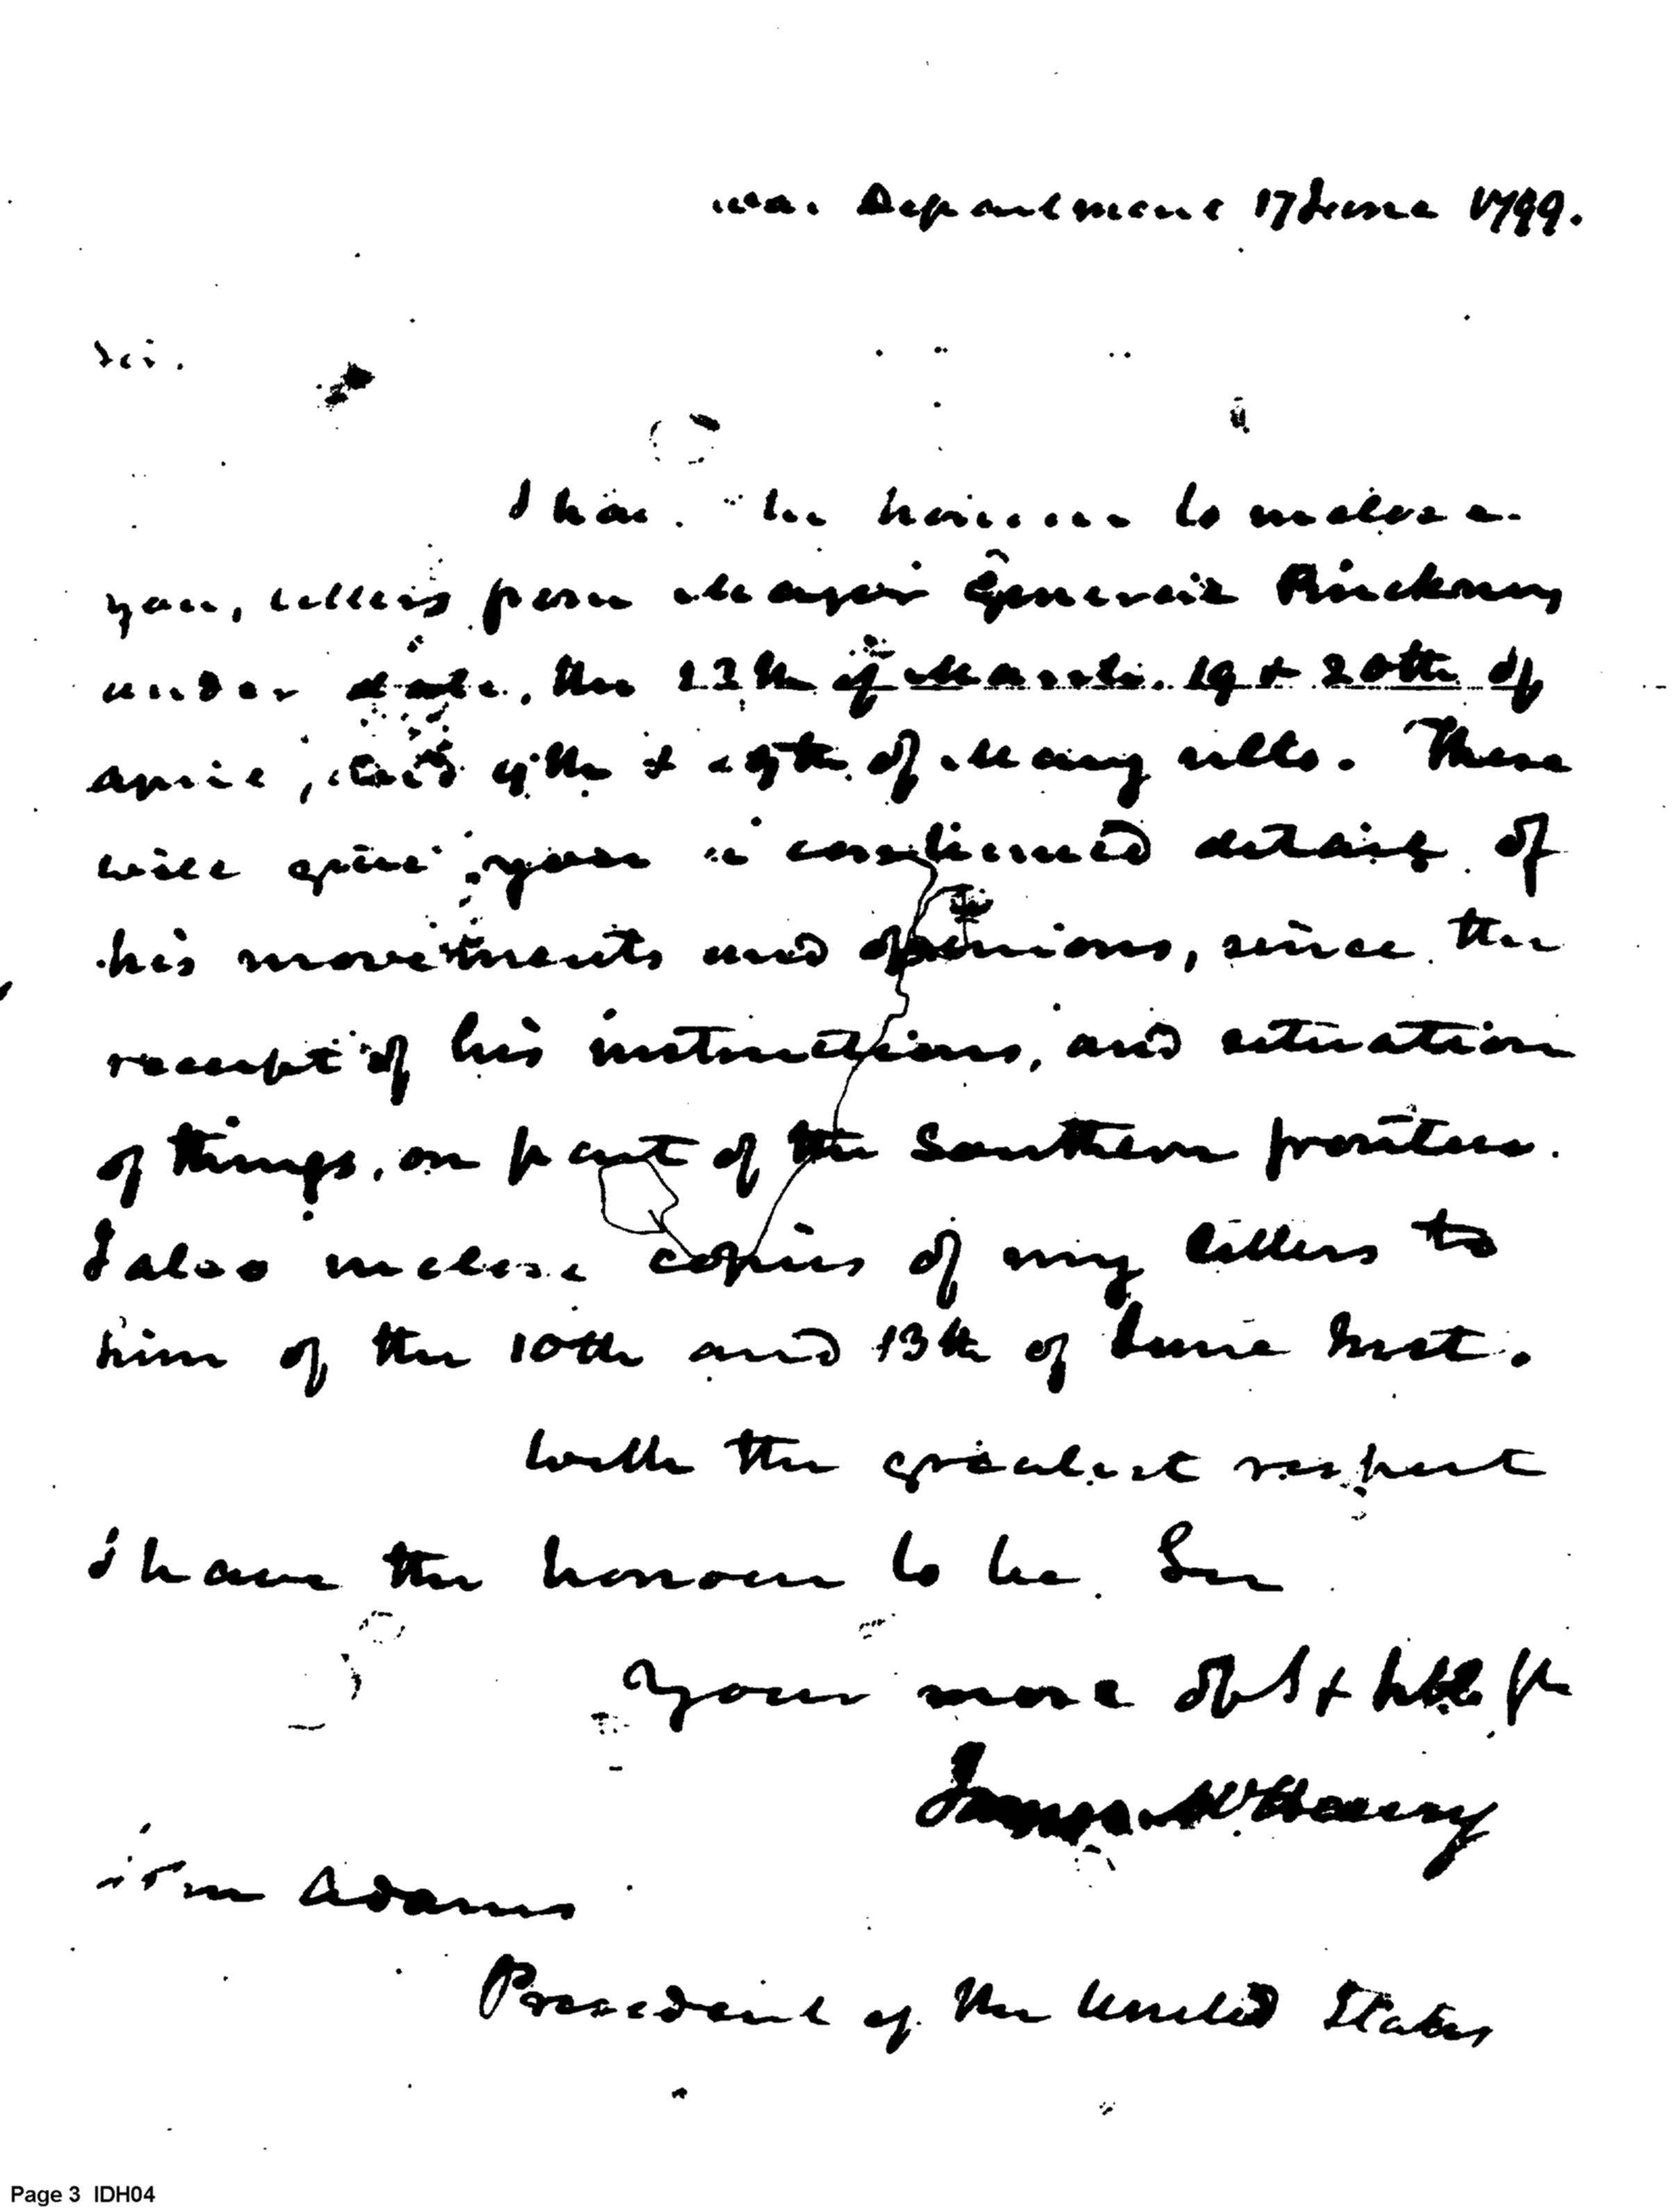 War Department 17 June 1799.
Sir.
I have the honour to inclose
you, letters from Major General Pinckney
under date, the of March. 19 & 20th of
April, and 9th & of May ulto. These
will give you a continued detail of
his movements and opinions, since the
receipt of his instructions, and situation
of things, on part of the Southern frontiers.
I also inclose copies of my letters to
him of the 10th and 13th of June Inst.
With the greatest respect
I have the honour to be Sir
Your most obt & hble
James McHenry
John Adams
President of the United States
Page 3 IDH04